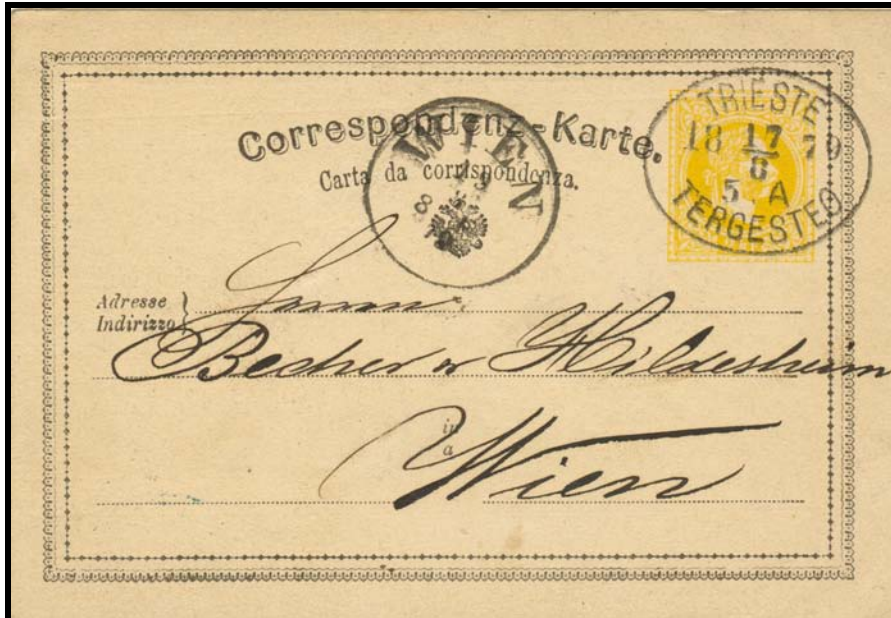 Correspondenz-Karte.
Carta da corrispondenza.
TRIESTE
18 17/8 79
5 A
TERGESTEO
WIEN
8
79
Adresse
Indirizzo
Herrn
Becher & Hildesheim
in
a
Wien